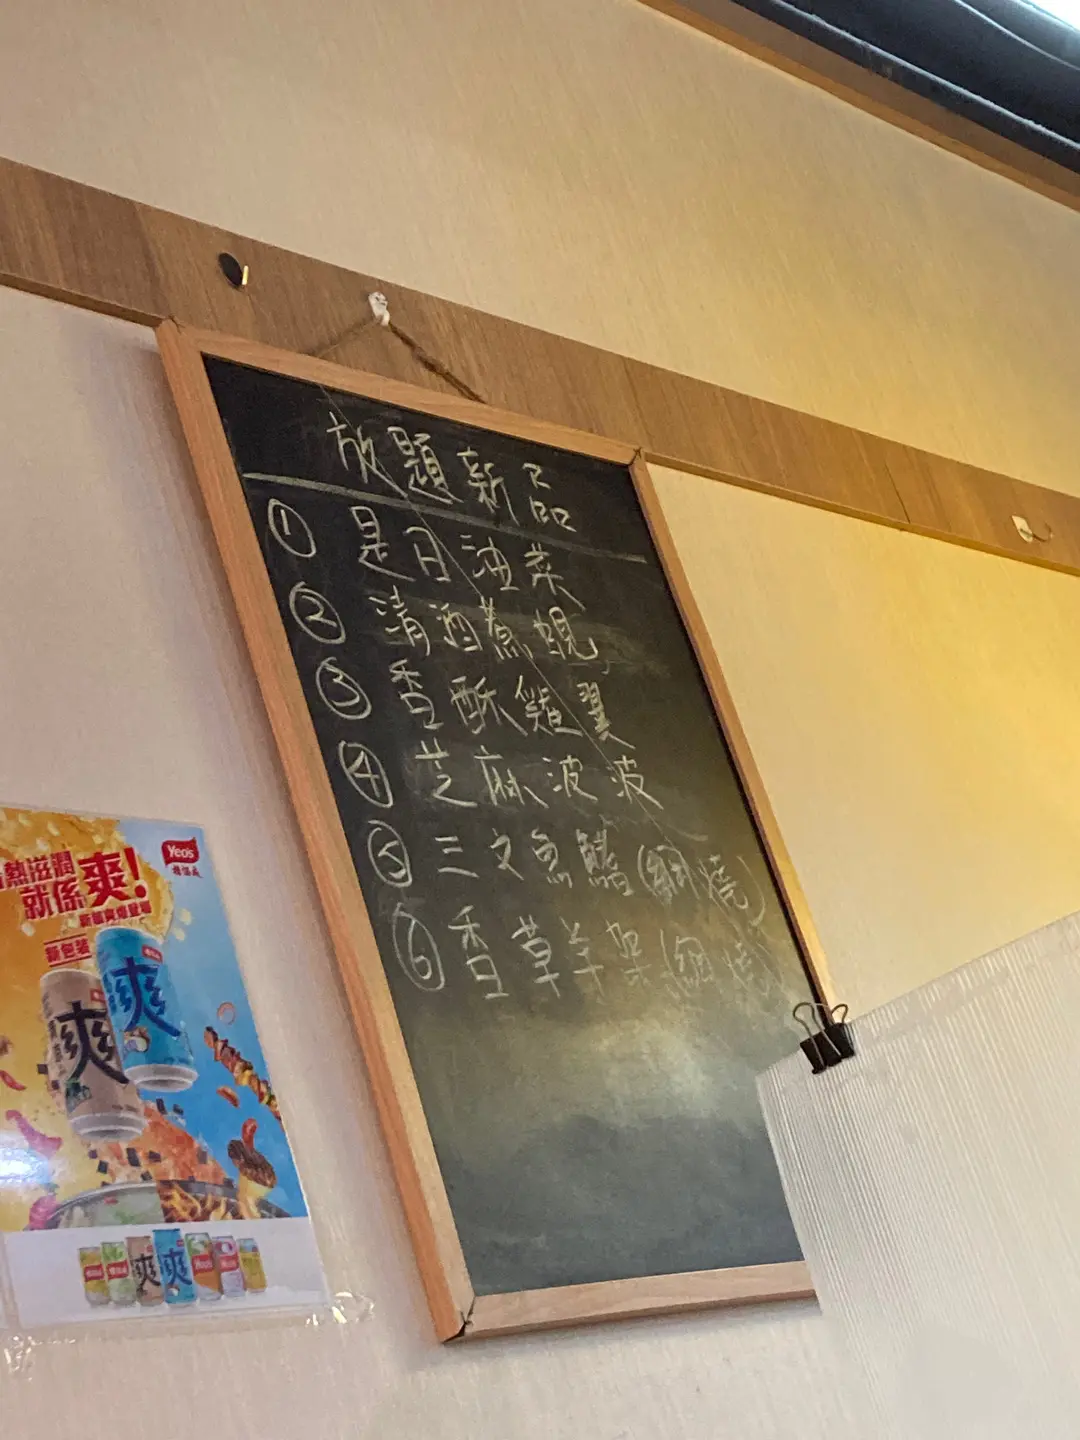 放題新品
① 是日油菜
② 清酒煮蜆
③ 香酥雞翼
④ 芝麻波波
⑤ 三文魚鰭(網燒)
⑥ 香草羊架(網燒)
Yeo's
楊協成
熱滋潤
就係爽!
新包裝
爽
爽
爽
爽